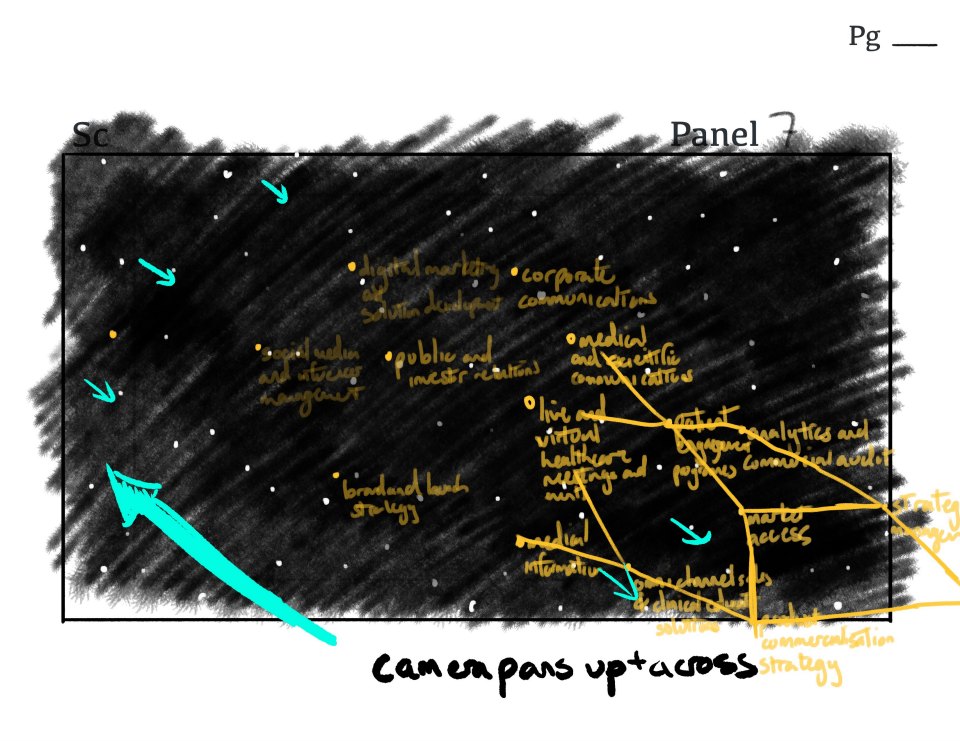 Pg
Sc
Panel 7
digital marketing
solution development
corporate
communications
social media
and
management
public and
investor relations
medical
and scientific
communications
live and
virtual
healthcare
meetings and
brand and launch
strategy
medical
information
patient
engagement
programmes
analytics and
commercial audit
market
access
omnichannel sales
& clinical
solutions
product
commercialisation
strategy
camera pans up + across